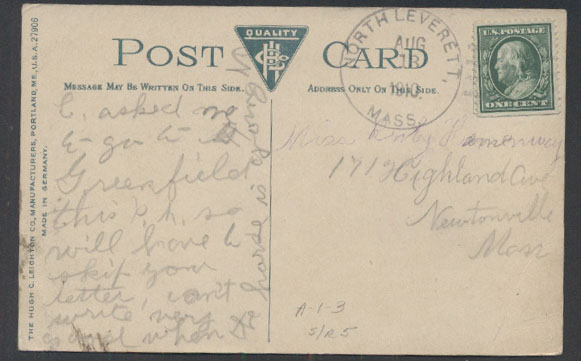 POST CARD
QUALITY
MESSAGE MAY BE WRITTEN ON THIS SIDE.
ADDRESS ONLY ON THIS SIDE.
THE HUGH C. LEIGHTON CO., MANUFACTURERS, PORTLAND, ME., U.S.A. 27906
MADE IN GERMANY.
NORTH LEVERETT,
AUG
18
1910
MASS.
U.S. POSTAGE
ONE CENT
C. asked me
to go to
Greenfield
this p.h. so
will have to
skip your
letter, can't
write very
good when
Miss Ruby
171 Highland Ave
Newtonville
Mass
A-1-3
S/R5